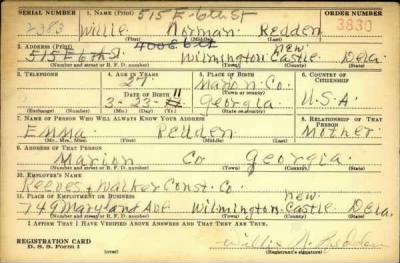 SERIAL NUMBER 1. NAME (Print) 515 E-6th St ORDER NUMBER
2383 Willie Norman Redden 3830
(First) (Middle) (Last)
2. ADDRESS (Print) 400 E 6 St new
515 E 6th St. Wilmington Castle Dela.
(Number and street or R. F. D. number) (Town) (County) (State)
3. TELEPHONE 4. AGE IN YEARS 5. PLACE OF BIRTH 6. COUNTRY OF CITIZENSHIP
29 Marion Co.
DATE OF BIRTH 11 (Town or county)
3-23- Georgia U.S.A
(Exchange) (Number) (Mo.) (Day) (Yr.) (State or country)
7. NAME OF PERSON WHO WILL ALWAYS KNOW YOUR ADDRESS 8. RELATIONSHIP OF THAT PERSON
Emma Redden Mother
(Mr., Mrs., Miss) (First) (Middle) (Last)
9. ADDRESS OF THAT PERSON
Marion Co Georgia
(Number and street or R. F. D. number) (Town) (County) (State)
10. EMPLOYER'S NAME
Reeves + Walker Const. Co.
11. PLACE OF EMPLOYMENT OR BUSINESS new
749 Maryland Ave Wilmington Castle Dela.
(Number and street or R. F. D. number) (Town) (County) (State)
I AFFIRM THAT I HAVE VERIFIED ABOVE ANSWERS AND THAT THEY ARE TRUE.
REGISTRATION CARD Willie N. Redden
D. S. S. Form 1 (over) (Registrant's signature)